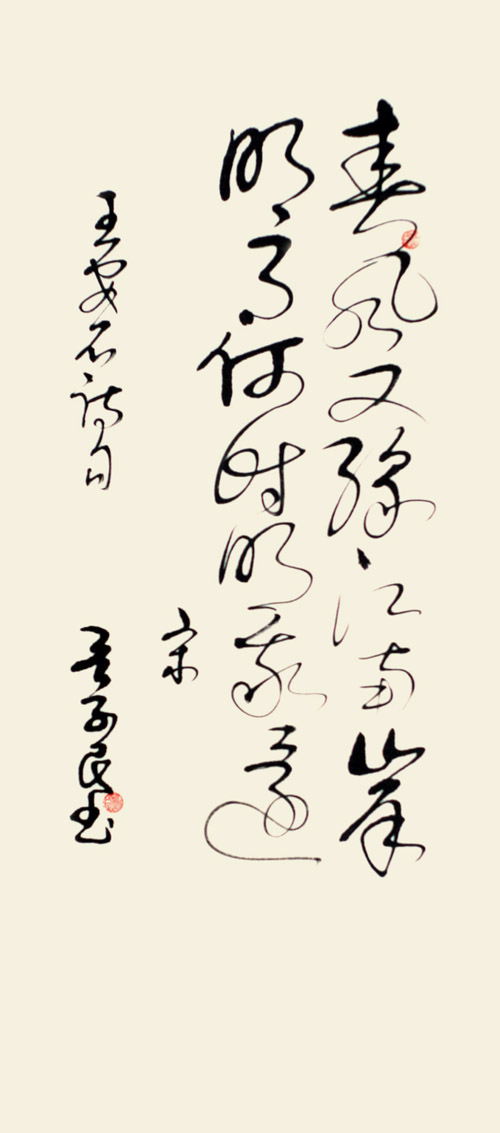 春风又绿江南岸
明月何时照我还
宋
王安石诗句
子民书